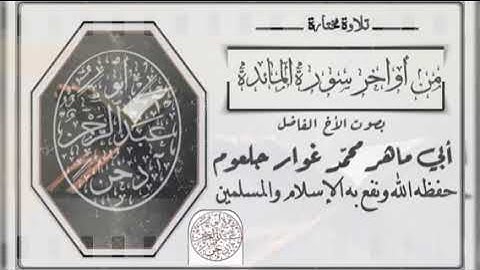 تلاوة مختارة
من أواخر سورة المائدة
بصوت الأخ الفاضل
أبي ماهر محمد غوار جلعوم
حفظه الله ونفع به الإسلام والمسلمين
أبو
عبد الرحمن